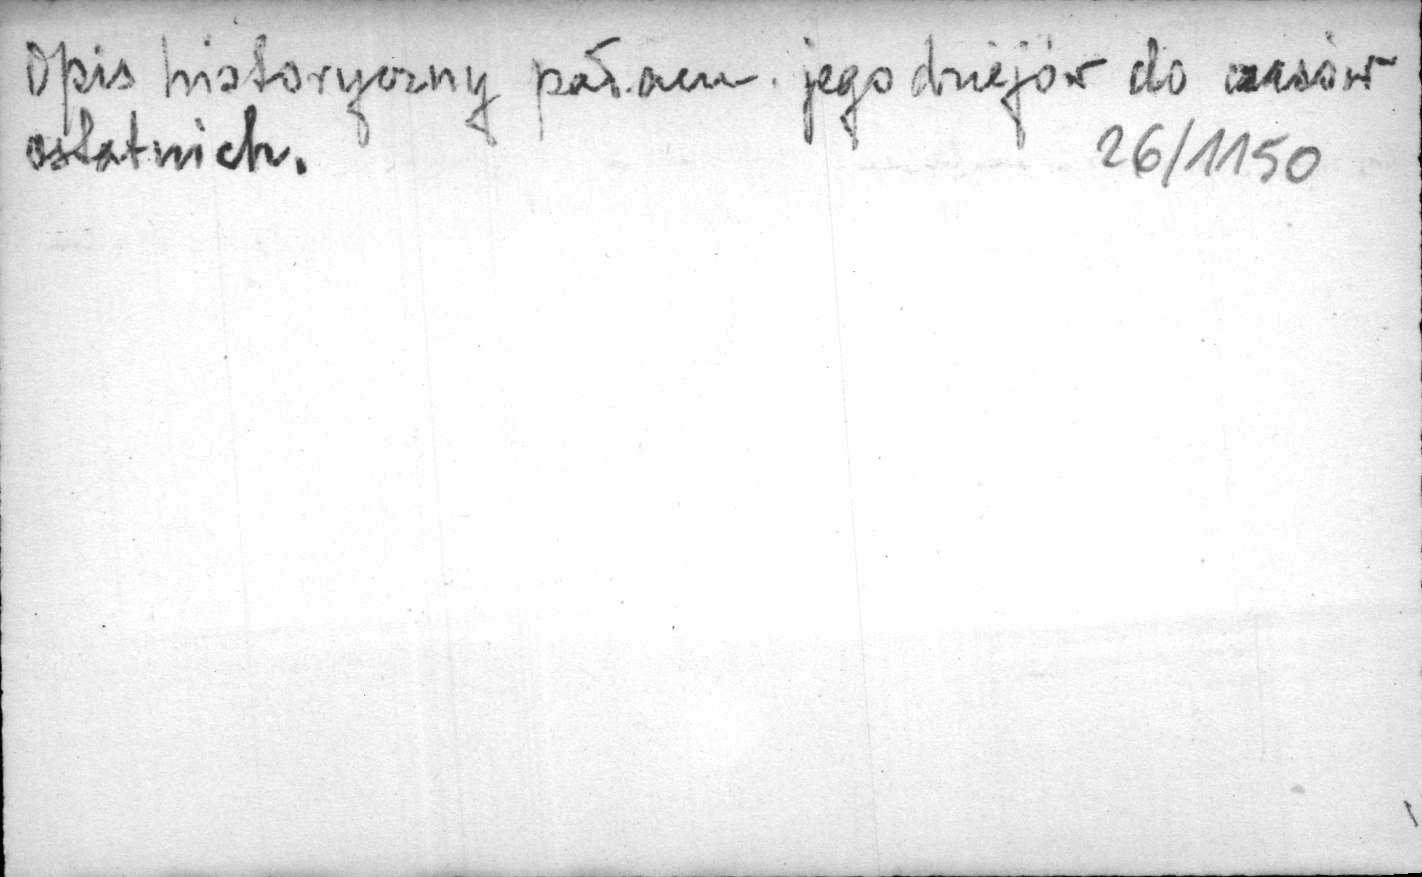 Opis historyczny pałacu. jego dziejów do czasów
ostatnich.
26/1150